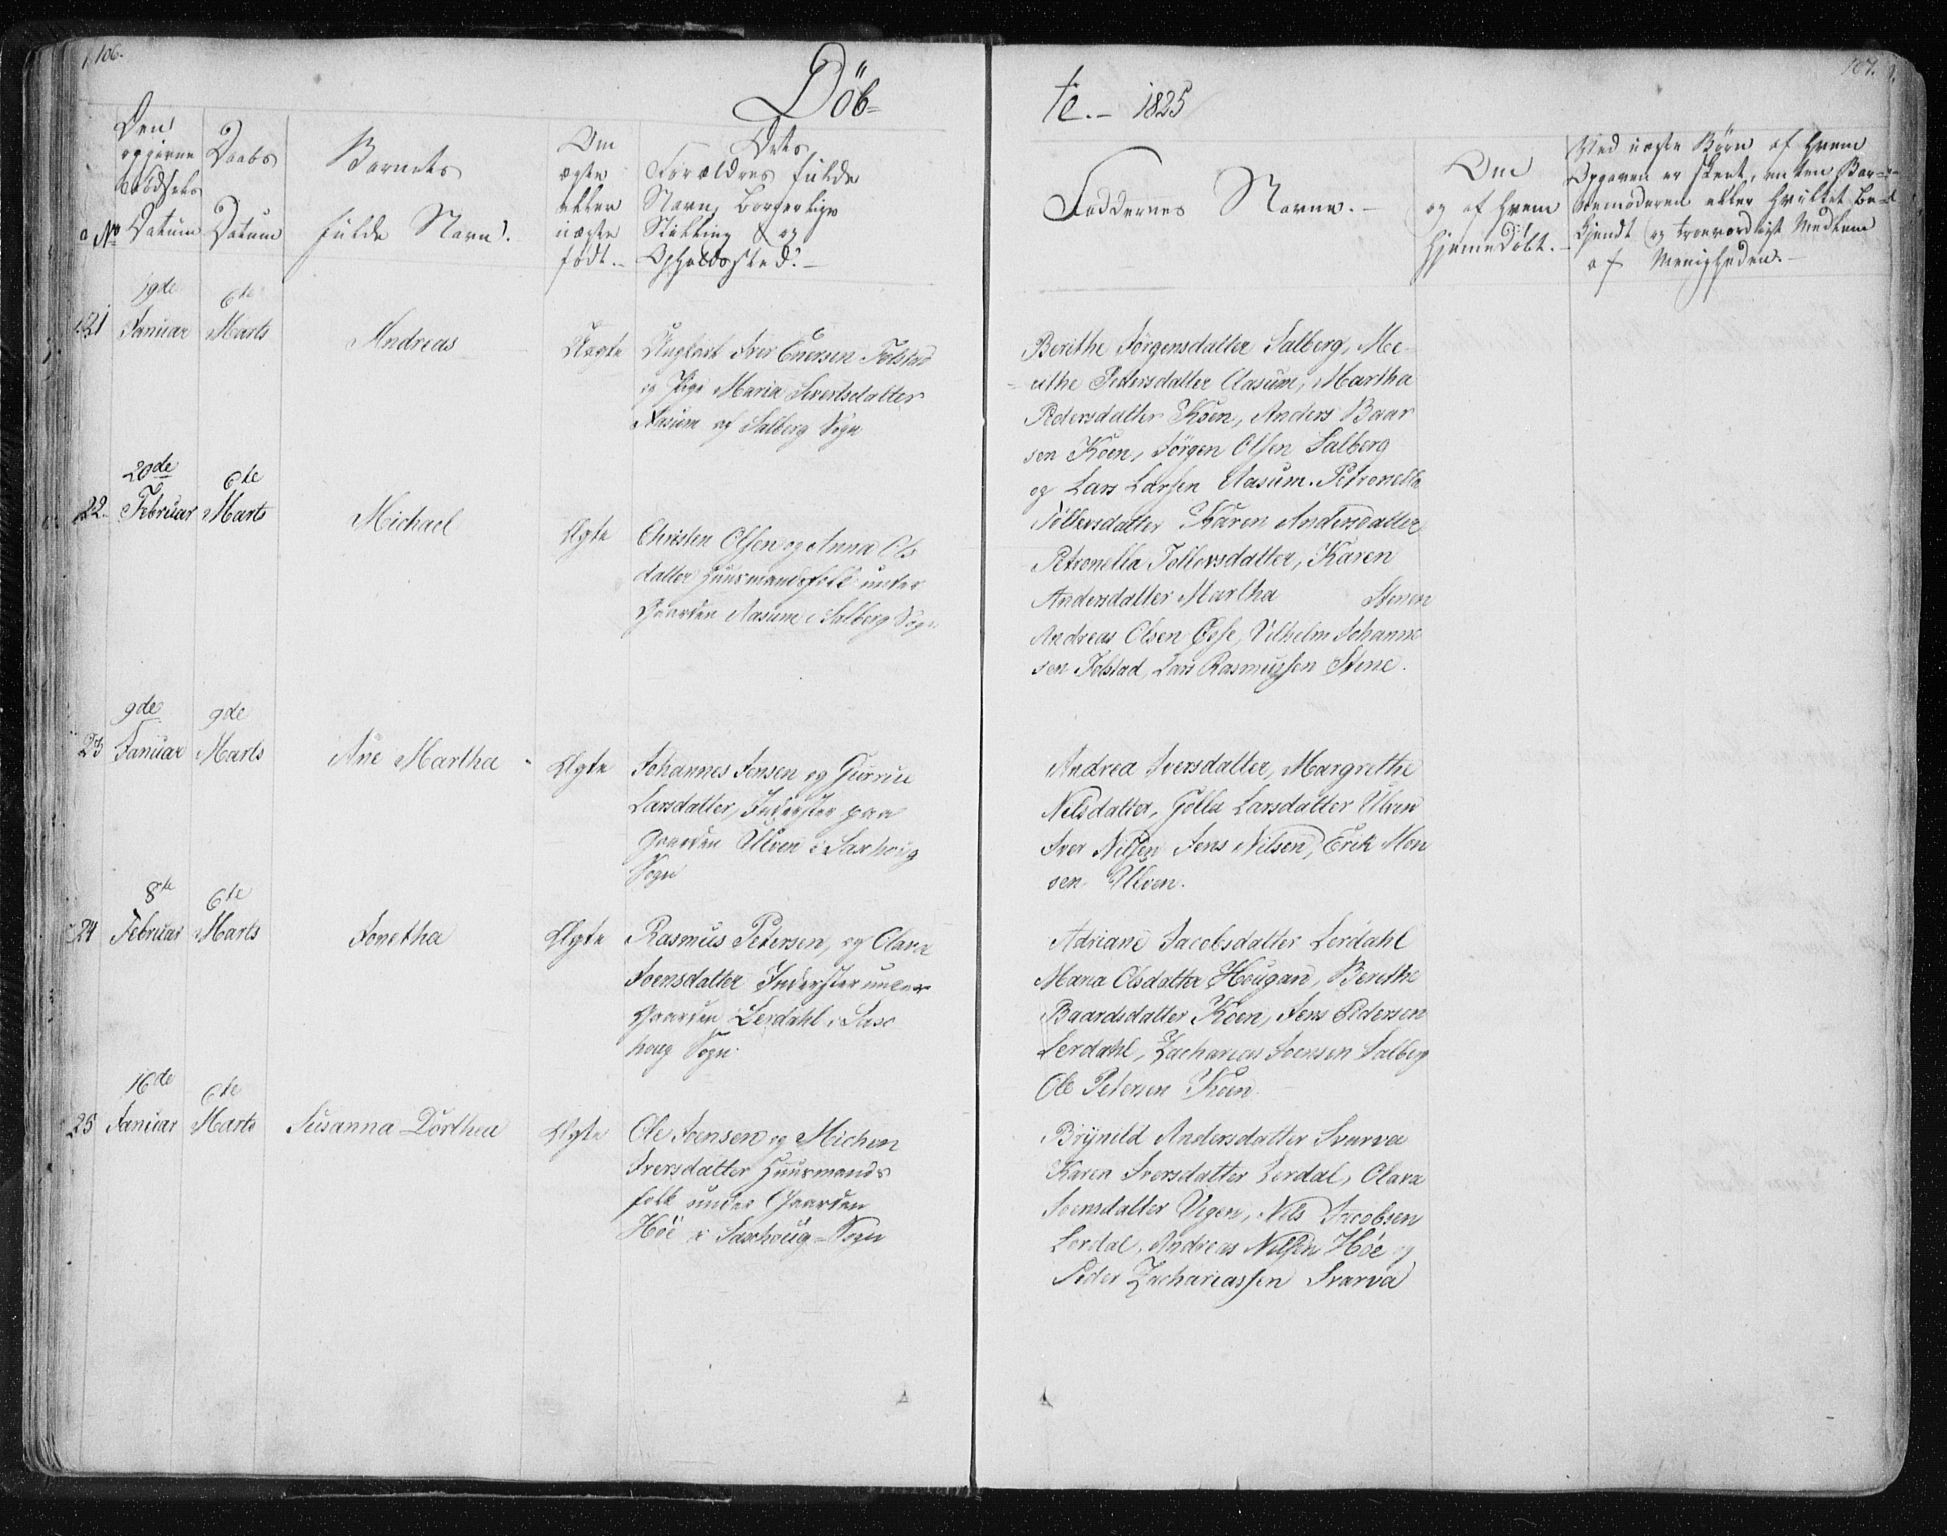 106.
107.
Döb-
te. - 1825
Den
opgivne
Fødsels
Datum
Daabs
Datum
Barnets
fulde Navn.
Om
ægte
eller
uægte
født.
Dets
Forældres fulde
Navn, Borgerlige
Stilling og
Opholdssted. -
Faddernes Navne. -
Om
og af hvem
hjemedöbt. -
Ved uægte Börn af hvem
Opgaven er skeet, enten Bar-
nemoderen eller hvilket be-
kjendt og troeværdigt Medlem
af Menigheden. -
No
21
19de
Januar
6te
Marts
Andreas
Uægte
Ungkarl Iver Enersen Tolstad
og Pige Maria Sivertsdatter
Aasum af Salberg Sogn
Berithe Jörgensdatter Salberg, Me-
rithe Petersdatter Aasum, Martha
Pedersdatter Koen, Anders Baar
sen Koen, Jörgen Olsen Salberg
og Lars Larsen Aasum. Petronella
Tollersdatter Karen Andersdatter
22.
20de
Februar
6te
Marts
Michael
Ægte
Christen Olsen og Anna Ols
datter Huusmandsfolk under
Gaarden Aasum i Salberg Sogn
Petronella Tollersdatter, Karen
Andersdatter Martha Stenen
Andreas Olsen Vilhelm Johanne
sen Tolstad, Lars Rasmussen Stene.
23
9de
Januar
9de
Marts
Ane Martha
Ægte
Johannes Jensen og Gurrue
Larsdatter, Inderster paa
Gaarden Ulven i Saxhoug
Sogn
Andrea Iversdatter, Margrethe
Nilsdatter, Golla Larsdatter Ulven
Iver Nilsen Jens Nilsen, Erik Mon
sen Ulven.
24
8de
Februar
6te
Marts
Jonetha
Ægte
Rasmus Petersen, og Olava
Joensdatter Inderster under
Gaarden Lerdahl i Sax
houg Sogn.
Adriane Jacobsdatter Lerdahl
Maria Olsdatter Hougan, Berethe
Baardsdatter Koen, Jens Pedersen
Lerdahl, Zacharias Joensen Salberg
Ole Petersen Koen
25
16de
Januar
6te
Marts
Susanna Dorthea
Ægte
Ole Joensen og Michen
Iversdatter Huusmands
folk under Gaarden
Höe i Saxhoug Sogn
Brynild Andersdatter Svarva
Karen Iversdatter Lerdal, Olava
Joensdatter Vegen, Nils Jacobsen
Lerdal, Andreas Nilsen Höe og
Peder Zachariassen Svarva